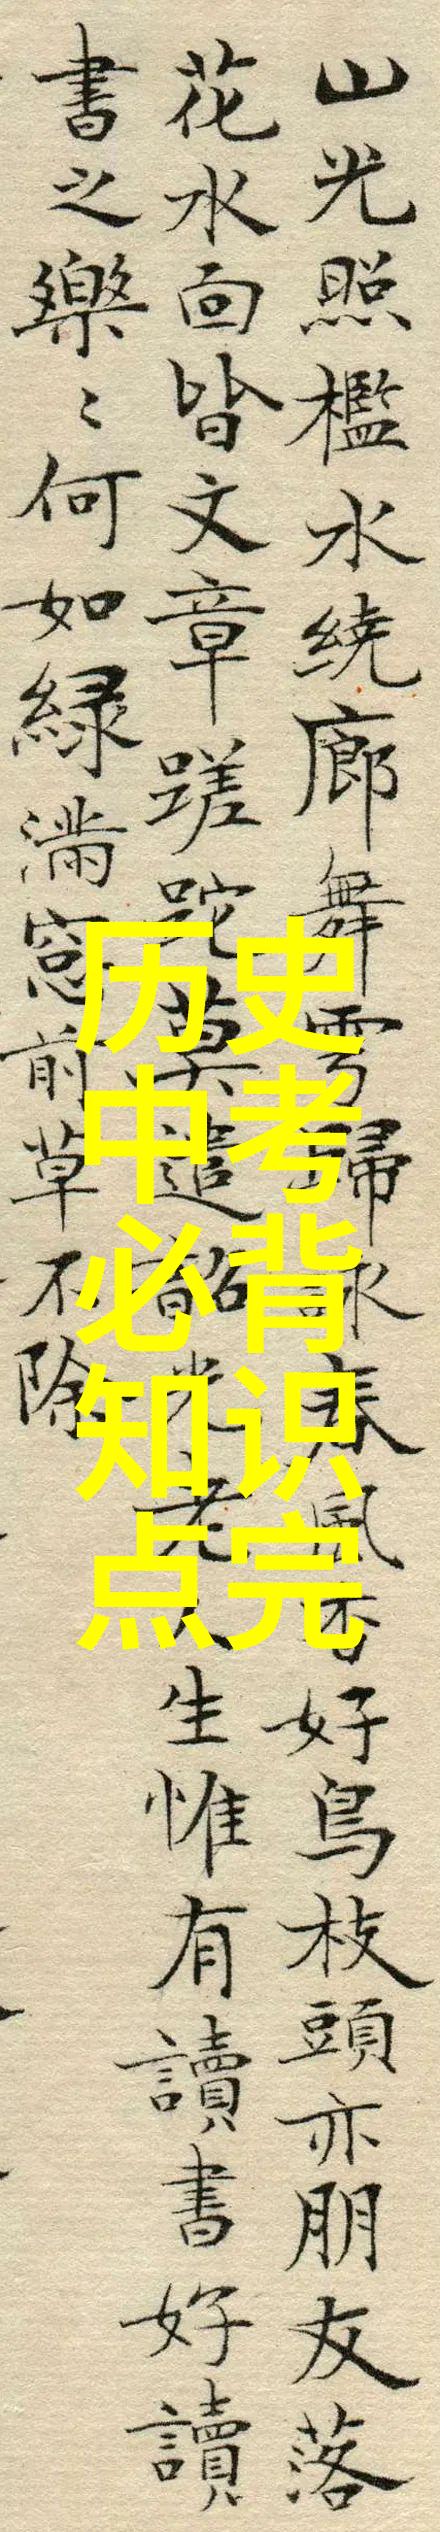 山光照檻水绕廊舞雩歸詠春風香好鳥枝頭亦朋友落
花水面皆文章蹉跎莫遣韶光老人生惟有讀書好讀
書之樂〻何如緑滿窓前草不除
历史
中考
必背
知识
点完